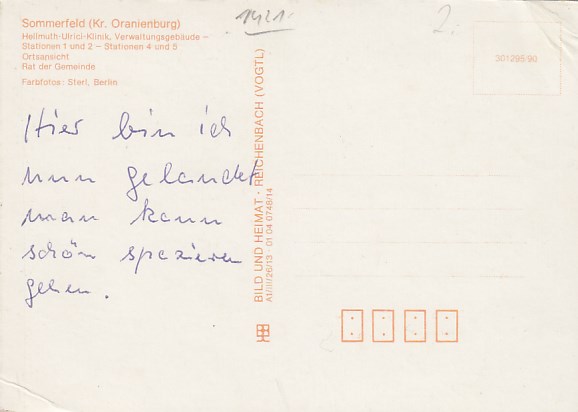 Sommerfeld (Kr. Oranienburg)
Hellmuth-Ulrici-Klinik, Verwaltungsgebäude –
Stationen 1 und 2 – Stationen 4 und 5
Ortsansicht
Rat der Gemeinde
Farbfotos: Sterl, Berlin
1421
2.
301295 90
Hier bin ich
nun gelandet
man kann
schön spazieren
gehen.
BILD UND HEIMAT · REICHENBACH (VOGTL)
A1/III/26/13 · 01 04 0748/14